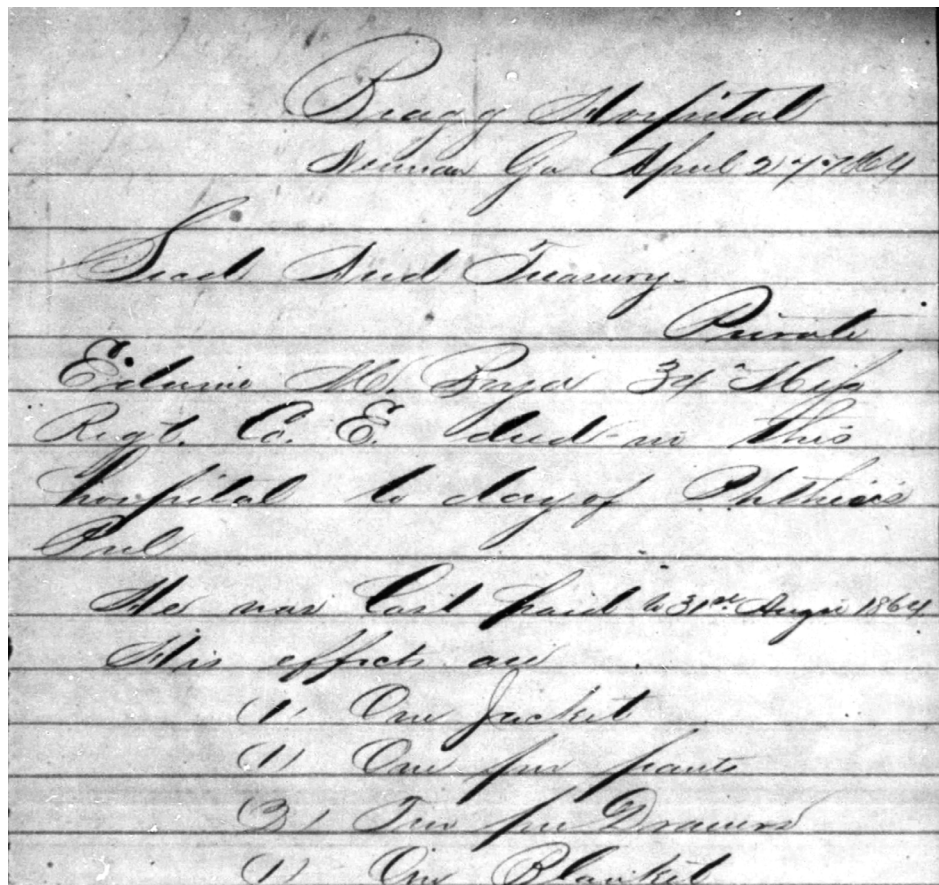 Bragg Hospital
Newnan Ga April 27 1864
Treasury.
Private
Edwin M. 34 Miss
Regt. Co. E. died in this
hospital to day of Phthisis
Pul
He was last paid to 31st 1864
His effects are
(1) One Jacket
(1) One pair pants
Two pair Drawers
(1) One Blanket